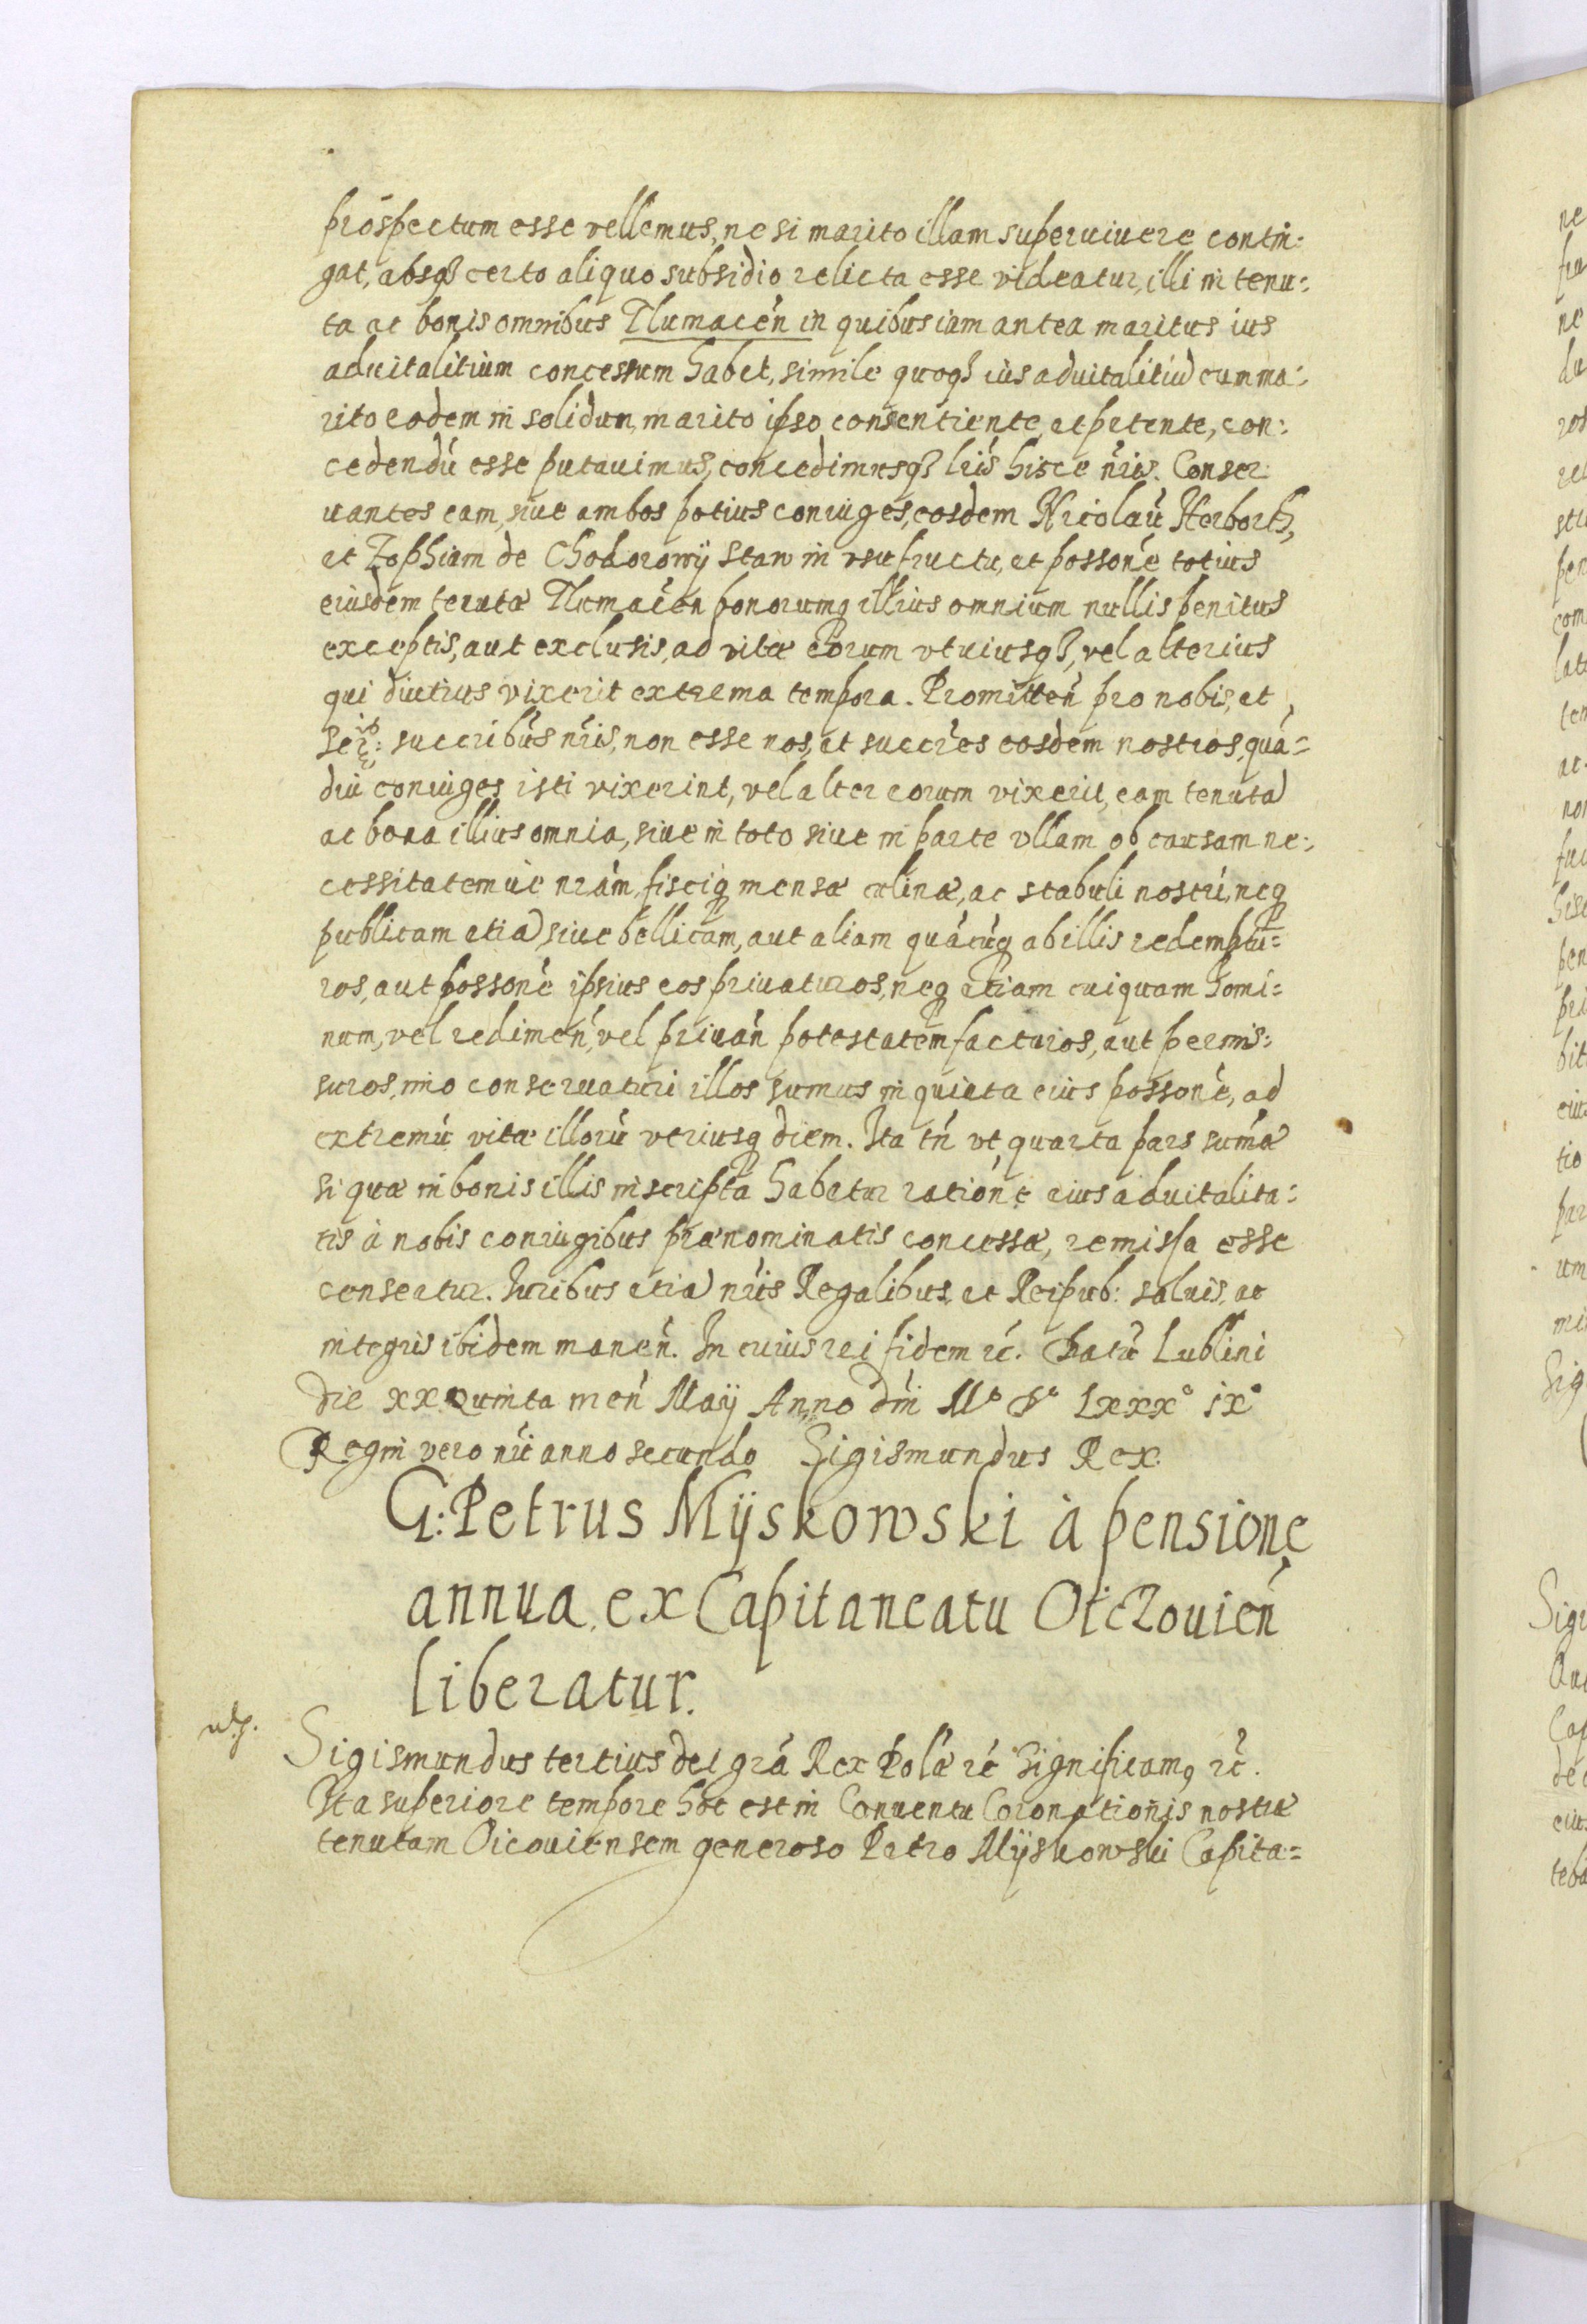 prospectum esse vellemus, ne si marito illam superuiuere contin:
gat, absq₃ certo aliquo subsidio relicta esse videatur, illi in tenu:
ta ac bonis omnibus Tlumacen̄ in quibus iam antea maritus ius
aduitalitium concessum habet, simile quoq₃ ius aduitalitiū cum ma:
rito eodem in solidum, marito ipso consentiente et petente, con:
cedendū esse putauimus, concedimusq₃ lr̄is hisce nr̄is. Conser
uantes eam, siue ambos potius coniuges, eosdem Nicolaū Herborth,
et Zophiam de Chodorowÿ staw in vsufructu, et possone totius
eiusdem tenutæ Tlumacen̄ bonorumq illius omnium nullis penitus
exceptis, aut exclusis, ad vitæ eorum vtriusq₃, vel alterius
qui diutius vixerit extrema tempora. Promitten̄ pro nobis, et
Ser: succribus nr̄is, non esse nos, et succr̄es eosdem nostros, quā=
diu coniuges isti vixerint, vel alter eorum vixerit, eam tenutā
ac bona illius omnia, siue in toto siue in parte vllam ob causam ne:
cessitatemue nr̄am, fisciq mensæ culinæ, ac stabuli nostri, neq
publicam etiā siue bellicam, aut aliam quācūq ab illis redemptu=
ros, aut possone ipsius eos priuaturos, neq etiam cuiquam homi=
num, vel redimen̄, vel priuan̄ potestatem facturos, aut permis:
suros, imo conseruaturi illos sumus in quieta eius possone, ad
extremū vitæ illorū vtriusq diem. Ita tn̄ vt quarta pars sum̄æ
si quæ in bonis illis inscripta habetur ratione eius aduitalita:
tis à nobis coniugibus prænominatis concessæ, remissa esse
censeatur. Iuribus etiā nr̄is Regalibus, et Reipub: saluis, ac
integris ibidem manen̄. In cuius rei fidem rc̄. Datū Lublini
die xx Quinta men̄ Maÿ Anno dn̄i Mº Dº Lxxxº ixº
Regni vero nr̄i anno secundo Sigismundus Rex.
G: Petrus Mÿskowski à pensione
annua ex Capitaneatu Oiczouien̄
liberatur.
Sigismundus tertius dei grā Rex Polæ rc̄ Significamꝰ rc̄.
Ita superiore tempore hoc est in Conuentu Coronationis nostræ
tenutam Oicouiensem generoso Petro Mÿskowski Capita=